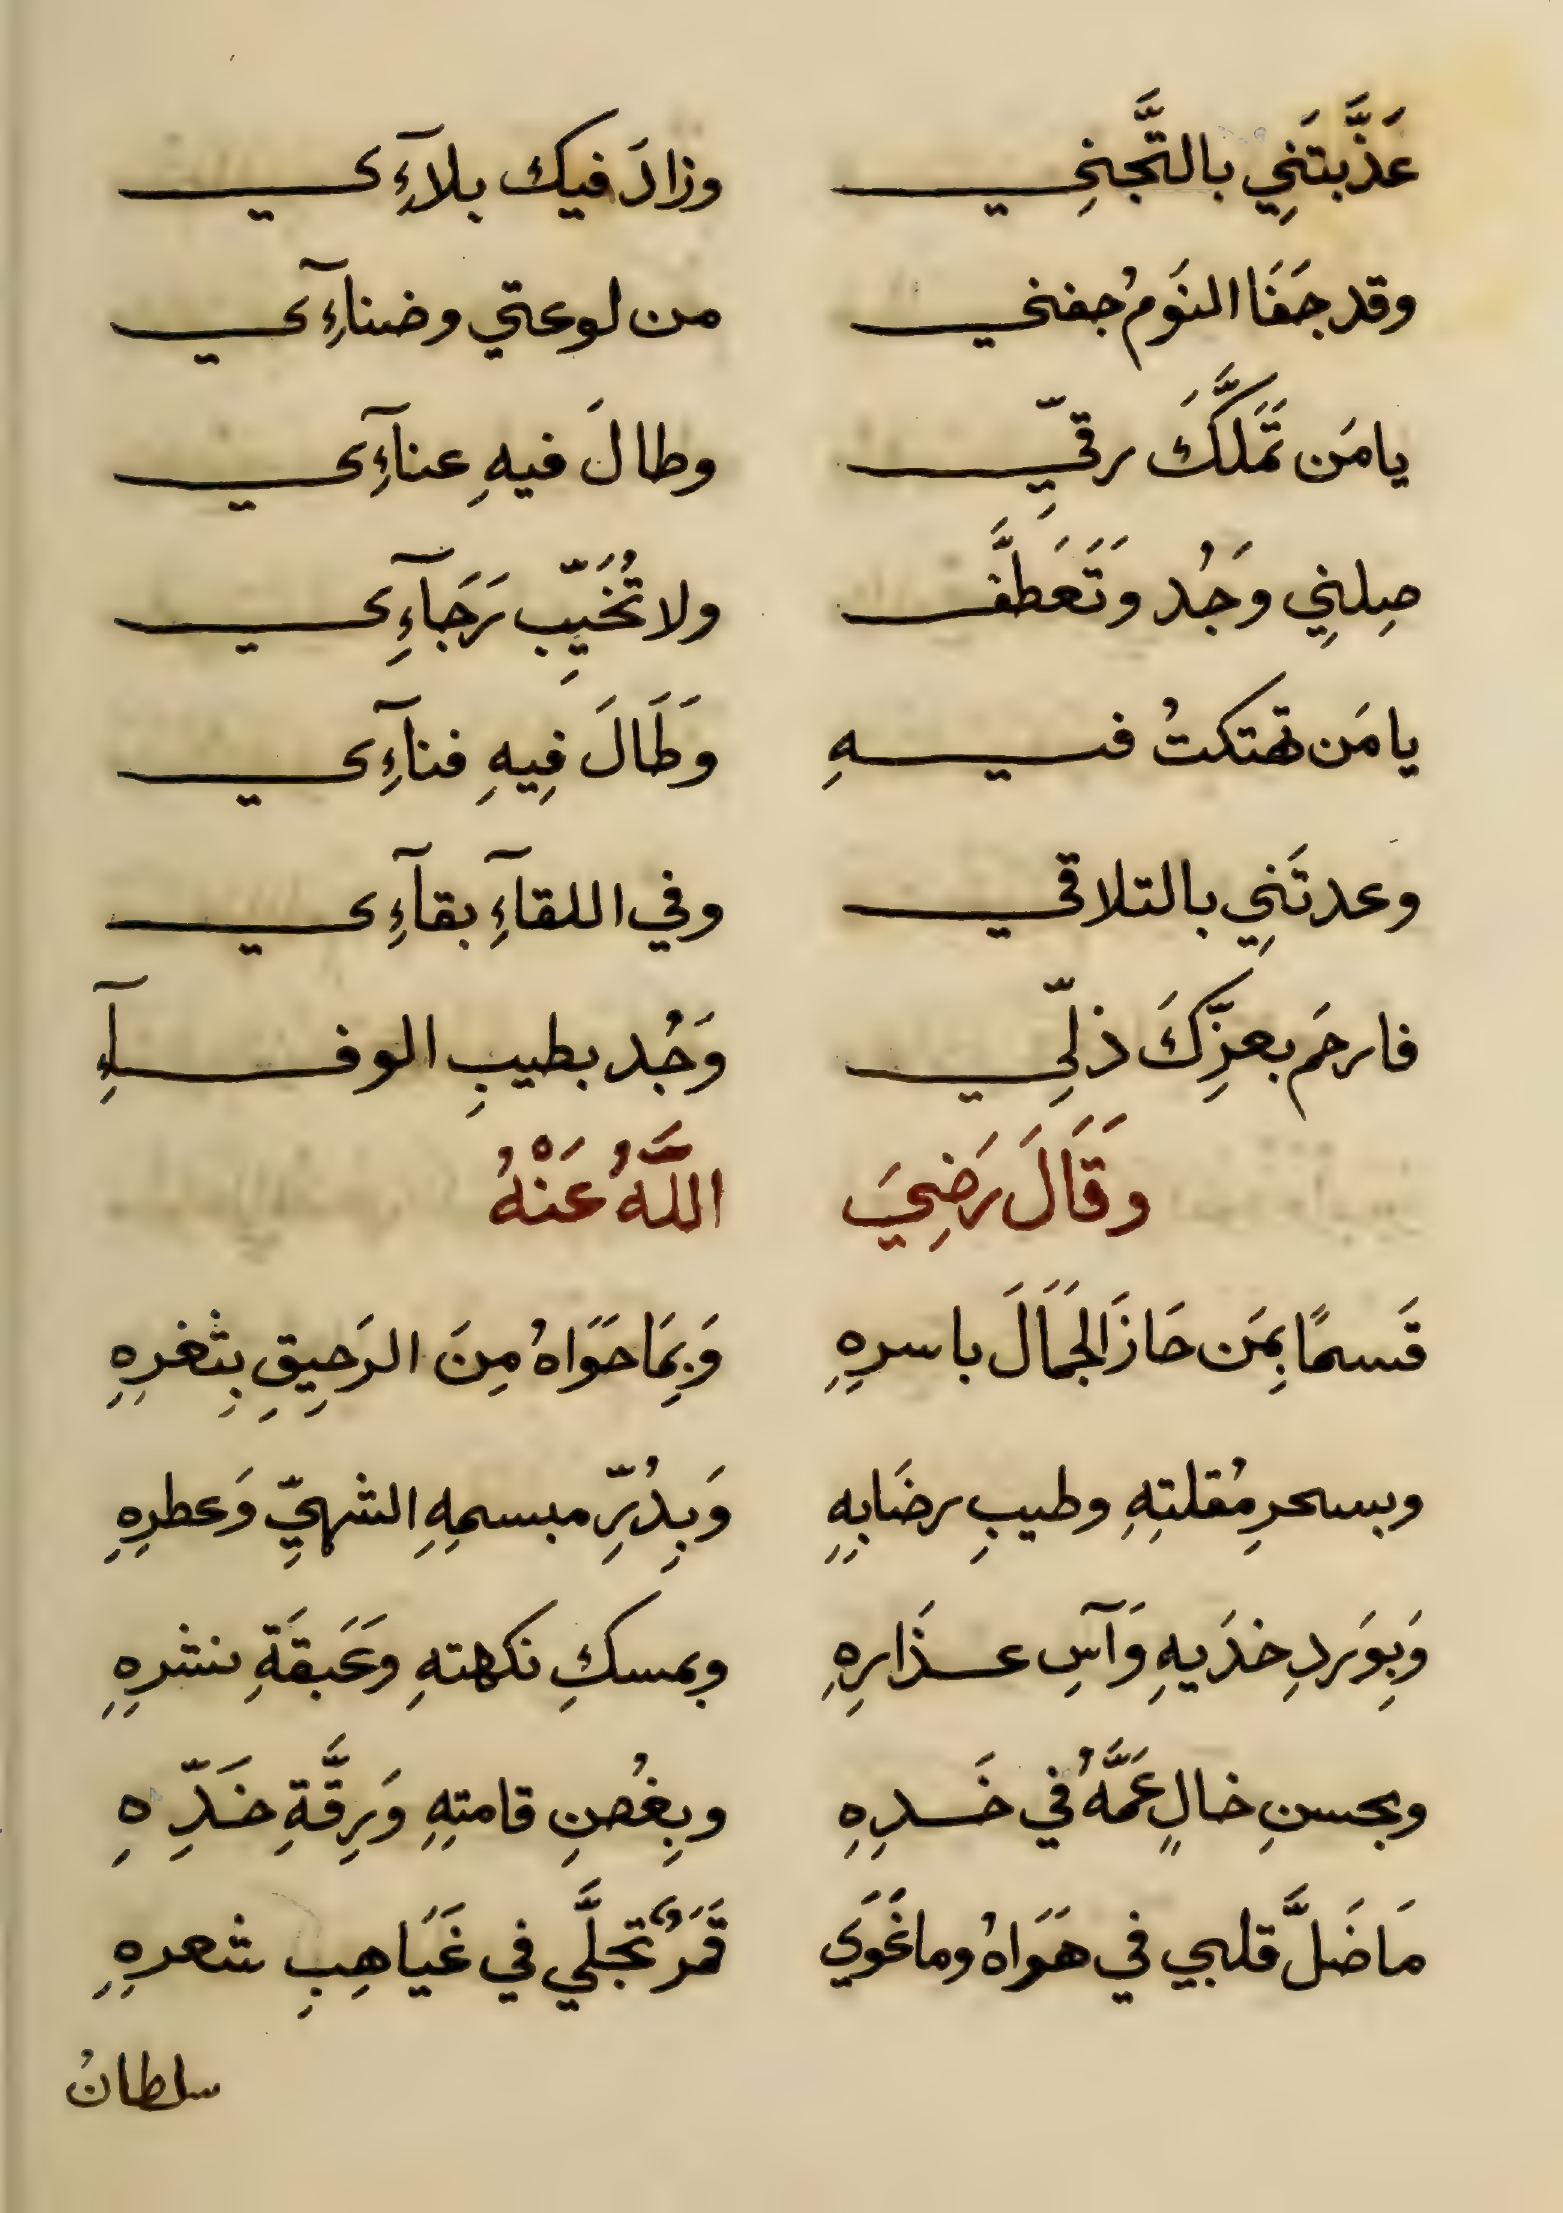 عَذَّبتَنِي بالتَّجنِي وزادَ فيك بلآءِي
وقد جَفَا النَومُ جفني من لوعتي وضناءِي
يا مَن تَمَلَّكَ رقيِّ وطالَ فيهِ عناءِي
صِلنِي وَجُد وَتَعَطَّف ولا تُخَيِّب رَجَآءِي
يا مَن تهتكتُ فيهِ وَطَالَ فِيهِ فناءِي
وعدتَنِي بالتلاقي وفي اللقآءِ بقآءِي
فارحَم بعزِّكَ ذلِّي وَجُد بطيبِ الوفآءِ
وَقَالَ رَضِيَ اللَّهُ عَنْهُ
قَسمًا بِمَن حَازَ الجَمَالَ باسرِهِ وَبِمَا حَوَاهُ مِنَ الرَحِيقِ بِثغرِهِ
وبسحرِ مُقلتِهِ وطيبِ رضَابهِ وَبِدُرِّ مبسمِهِ الشهيِّ وَعطرِهِ
وَبِوَردِ خدَيهِ وَآسِ عذَارِهِ وبمسكِ نكهتهِ وعَبقَةِ نشرِهِ
وبحسنِ خالٍ عَمَّهُ في خَدِهِ وبِغُصنِ قامتِهِ وَرِقَّةِ خَدِّهِ
مَا ضَلَّ قلبي في هَوَاهُ وما غَوَي قَمَرٌ تجلَّي في غَيَاهِبِ شعرِهِ
سلطانُ